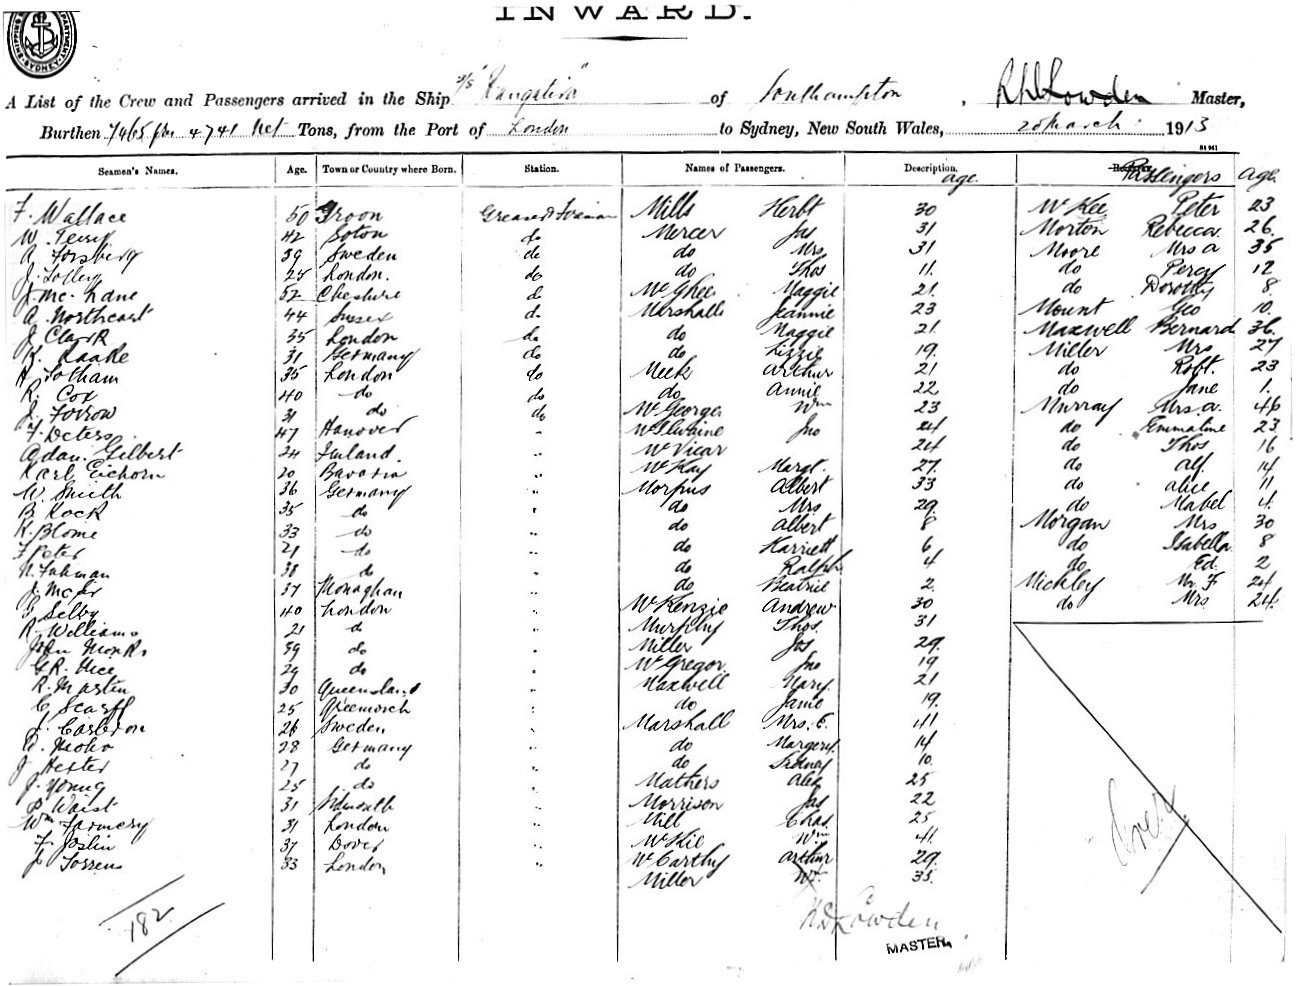 INWARD.
SYDNEY
A List of the Crew and Passengers arrived in the Ship s/s "Rangatira" of Southampton, Lowden Master,
Burthen 7465 4741 Net Tons, from the Port of London to Sydney, New South Wales, 20 March 1913
Seamen's Names. Age. Town or Country where Born. Station. Names of Passengers. Description. age. Passengers age.
F. Wallace 50 Greaser & Foreman Mills Herbt 30 McKee Peter 23
W. Terry 42 Soton do Mercer Jas 31 Morton Rebecca 26
A. Forsberg 39 Sweden do do Mrs 31 Moore Mrs A 35
J. 25 London do do Thos 11 do Percy 12
J. McKane 52 Cheshire do McGhee Maggie 21 do Dorothy 8
A. Northeast 44 Sussex do Marshall Jeannie 23 Mount Geo 10
J. Clark 35 London do do Maggie 21 Maxwell Bernard 36
K. Raake 31 Germany do do Lizzie 19 Miller Mrs 27
H. Totham 35 London do Meek Arthur 21 do Robt. 23
R. Cox 40 do do do Annie 22 do Jane 1
J. Forrow 31 do do McGeorge Wm 23 Murray Mrs A. 46
F. Deters 47 Hanover " McIlwaine Jno 24 do Emmaline 23
Adam Gilbert 24 Finland " McVicar 24 do Thos 16
Karl Eichorn 20 Bavaria " McKay Margt. 27 do Alf. 14
W. Smith 36 Germany " Morpus Albert 33 do Alice 11
B. Rock 35 do " do Mrs 29 do Mabel 4
K. Blome 33 do " do Albert 8 Morgan Mrs 30
F. Peter 21 do " do Harriett 6 do Isabella 8
N. Fuhman 38 do " do Ralph 4 do Ed. 2
J. 37 Monaghan " do Beatrice 2 Michley Mr. F 24
G. Selby 40 London " McKenzie Andrew 30 do Mrs 24
R. Williams 21 do " Murphy Thos. 31
John Monks 59 do " Miller Jas 29
G.R. Vice 29 do " McGregor Jno 19
R. Martin 30 Queensland " Maxwell Mary 21
C. Scarff 25 Greenwich " do Jane 19
J. Carlson 26 Sweden " Marshall Mrs. E. 41
28 Germany " do Margery 14
J. Hester 27 do " do Sidney 10
J. Young 25 do " Mathers Alex 25
Waist 31 Sidmouth " Morrison Jas 22
Wm Farmery 31 London " Mill Chas. 25
F. Joslin 37 Dover " McKie Wm 41
J. Torrens 33 London " McCarthy Arthur 29
Miller Wm 35
182
Lowden
MASTER.